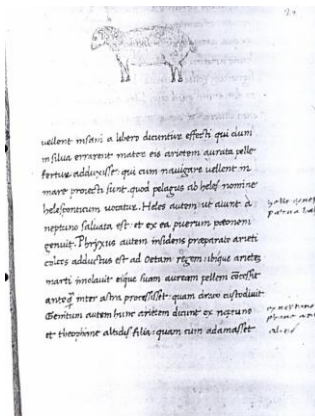 uellent insani a libero dicuntur effecti qui cum
in silua errarent mater eis arietem aurata pelle
fertur adduxisse qui cum nauigare uellent in
mare proiecti sunt quod pelagus ab heles nomine
helesponticum uocatur. Heles autem ut aiunt a
neptuno saluata est et ex ea puerum
genuit. Phryxus autem insidens praeparato arieti
adductus est ad Oetam regem ubique arietem
marti imolauit eique suam auream pellem
inter astra processisset quam draco custodiuit
Genitum autem hunc arietem dicunt ex neptuno
et theophine filia quam cum adamasset